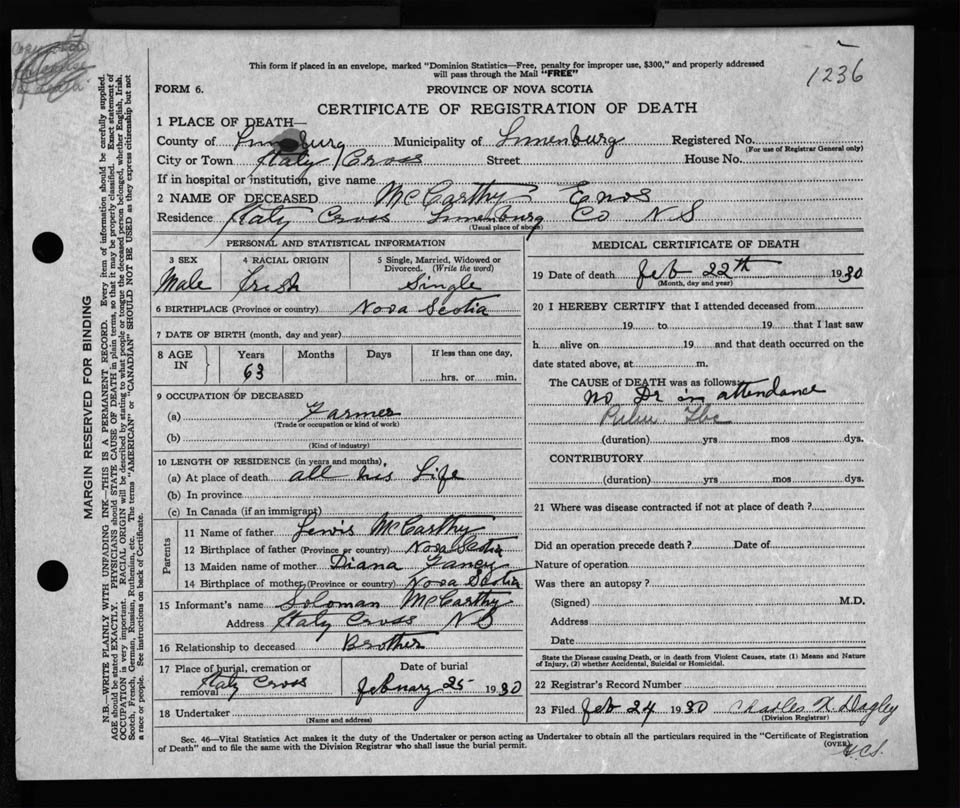 1236
This form if placed in an envelope, marked "Dominion Statistics—Free, penalty for improper use, $300," and properly addressed
will pass through the Mail "FREE"
FORM 6.
PROVINCE OF NOVA SCOTIA
CERTIFICATE OF REGISTRATION OF DEATH
1 PLACE OF DEATH—
County of Lunenburg Municipality of Lunenburg Registered No.
(For use of Registrar General only)
City or Town Italy Cross Street House No.
If in hospital or institution, give name
2 NAME OF DECEASED McCarthy Enos
Residence Italy Cross Lunenburg Co NS
(Usual place of abode)
PERSONAL AND STATISTICAL INFORMATION
3 SEX 4 RACIAL ORIGIN 5 Single, Married, Widowed or Divorced. (Write the word)
Male Irish Single
6 BIRTHPLACE (Province or country) Nova Scotia
7 DATE OF BIRTH (month, day and year)
8 AGE IN Years Months Days If less than one day,
63 hrs. or min.
9 OCCUPATION OF DECEASED
(a) Farmer
(Trade or occupation or kind of work)
(b)
(Kind of industry)
10 LENGTH OF RESIDENCE (in years and months)
(a) At place of death all his Life
(b) In province
(c) In Canada (if an immigrant)
Parents
11 Name of father Lewis McCarthy
12 Birthplace of father (Province or country) Nova Scotia
13 Maiden name of mother Diana Fancy
14 Birthplace of mother (Province or country) Nova Scotia
15 Informant's name Soloman McCarthy
Address Italy Cross NS
16 Relationship to deceased Brother
17 Place of burial, cremation or removal Italy Cross Date of burial
February 25 1930
18 Undertaker
(Name and address)
MEDICAL CERTIFICATE OF DEATH
19 Date of death Feb 22th 1930
(Month, day and year)
20 I HEREBY CERTIFY that I attended deceased from
19 to 19 that I last saw
h alive on 19 and that death occurred on the
date stated above, at m.
The CAUSE of DEATH was as follows:
No Dr in attendance
Tbc
(duration) yrs mos dys.
CONTRIBUTORY
(duration) yrs mos dys.
21 Where was disease contracted if not at place of death?
Did an operation precede death? Date of
Nature of operation
Was there an autopsy?
(Signed) M.D.
Address
Date
State the Disease causing Death, or in death from Violent Causes, state (1) Means and Nature
of Injury, (2) whether Accidental, Suicidal or Homicidal.
22 Registrar's Record Number
23 Filed Feb 24 1930 Charles Dagley
(Division Registrar)
Sec. 46—Vital Statistics Act makes it the duty of the Undertaker or person acting as Undertaker to obtain all the particulars required in the "Certificate of Registration
of Death" and to file the same with the Division Registrar who shall issue the burial permit.
(OVER)
MARGIN RESERVED FOR BINDING
N.B.—WRITE PLAINLY WITH UNFADING INK—THIS IS A PERMANENT RECORD. Every item of information should be carefully supplied.
AGE should be stated EXACTLY. PHYSICIANS should STATE CAUSE OF DEATH in plain terms, so that it may be properly classified. Exact statement of
OCCUPATION is very important. RACIAL ORIGIN will be described by stating to what people or tongue the deceased person belonged, whether English, Irish,
Scotch, French, German, Russian, Ruthenian, etc. The terms "AMERICAN" or "CANADIAN" SHOULD NOT BE USED as they express citizenship but not
a race or people. See instructions on back of Certificate.